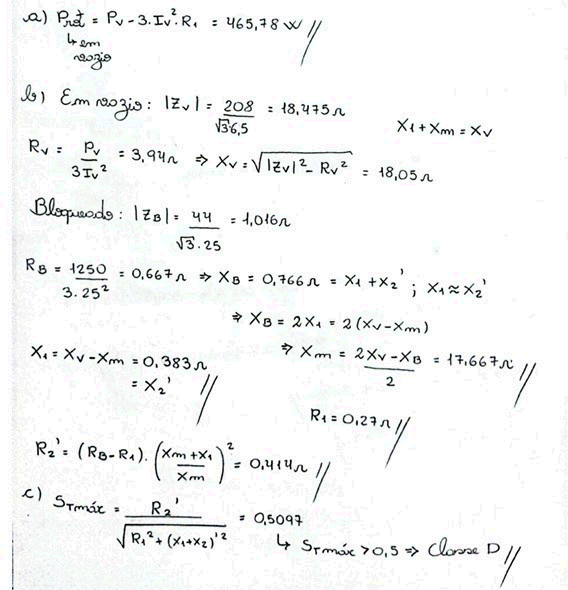 a) Prot = Pv - 3.Iv².R1 = 465,78 W //
↳ em
vazio
b) Em vazio: |Zv| = 208/(√3 6,5) = 18,475 Ω
X1 + Xm = Xv
Rv = Pv/(3Iv²) = 3,94 Ω ⇒ Xv = √(|Zv|² - Rv²) = 18,05 Ω
Bloqueado: |ZB| = 44/(√3 . 25) = 1,016 Ω
RB = 1250/(3.25²) = 0,667 Ω ⇒ XB = 0,766 Ω = X1 + X2' ; X1 ≈ X2'
⇒ XB = 2X1 = 2(Xv - Xm)
⇒ Xm = (2Xv - XB)/2 = 17,667 Ω //
X1 = Xv - Xm = 0,383 Ω
= X2' //
R1 = 0,27 Ω //
R2' = (RB - R1) . ((Xm + X1)/Xm)² = 0,414 Ω //
c) STmáx = R2'/√(R1² + (X1 + X2)'²) = 0,5097
↳ STmáx > 0,5 ⇒ Classe D //